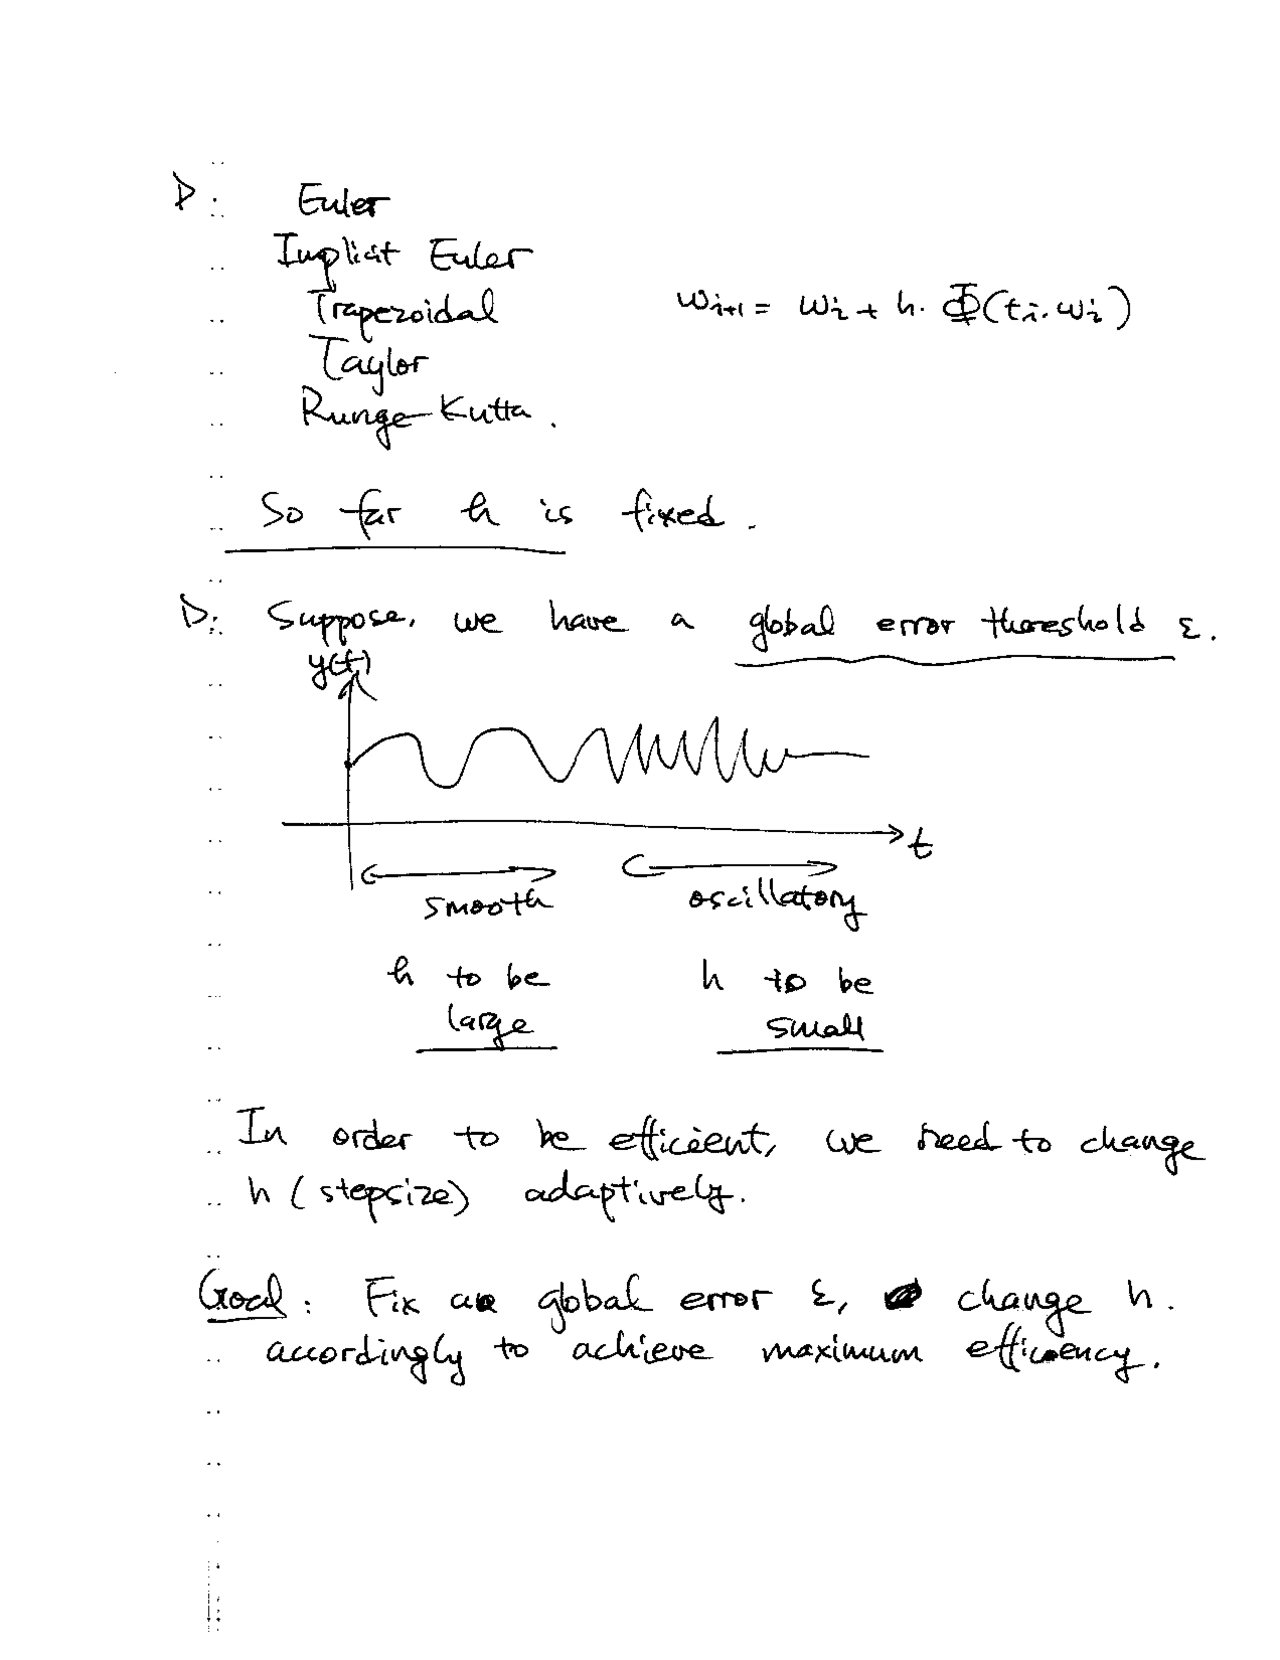 Euler
Implicit Euler
Trapezoidal
w_{i+1} = w_i + h. Φ(t_i. w_i)
Taylor
Runge-Kutta.
So far h is fixed.
Suppose, we have a global error thoreshold ε.
y(t)
t
smooth
oscillatory
h to be
large
h to be
small
In order to be efficient, we need to change
h (stepsize) adaptively.
Goal: Fix a global error ε, change h.
accordingly to achieve maximum efficiency.